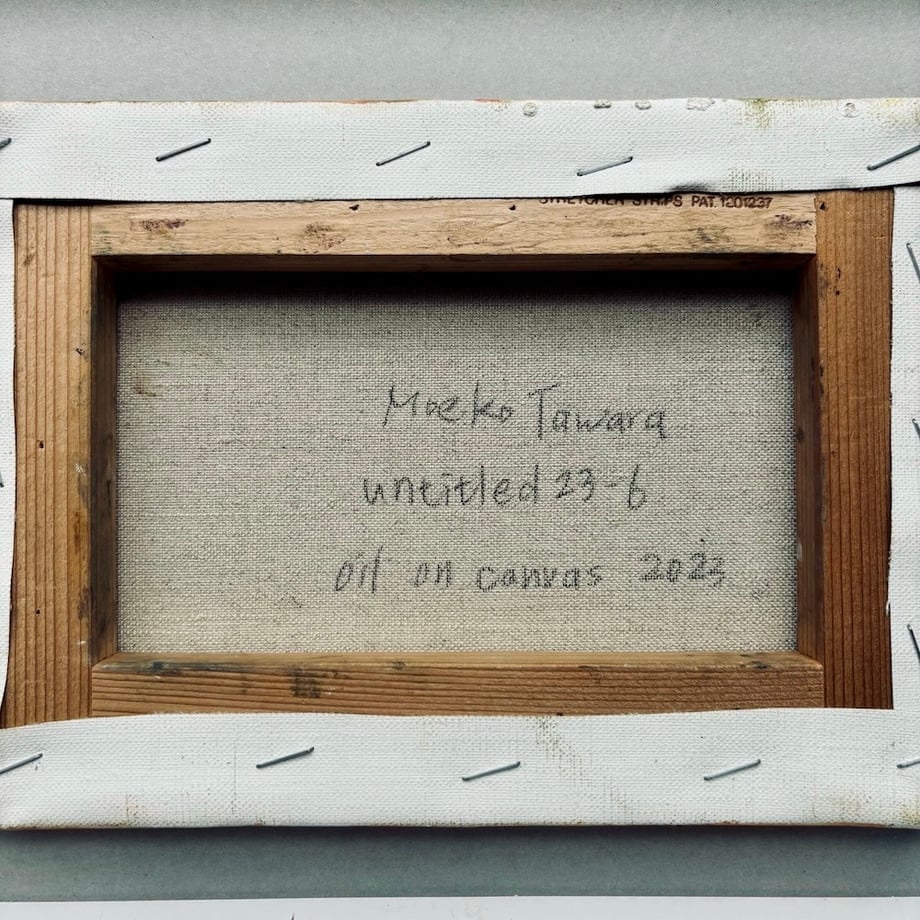 STRETCHER STRIPS PAT. 1201237
Moeko Tawara
untitled 23-6
oil on canvas 2023